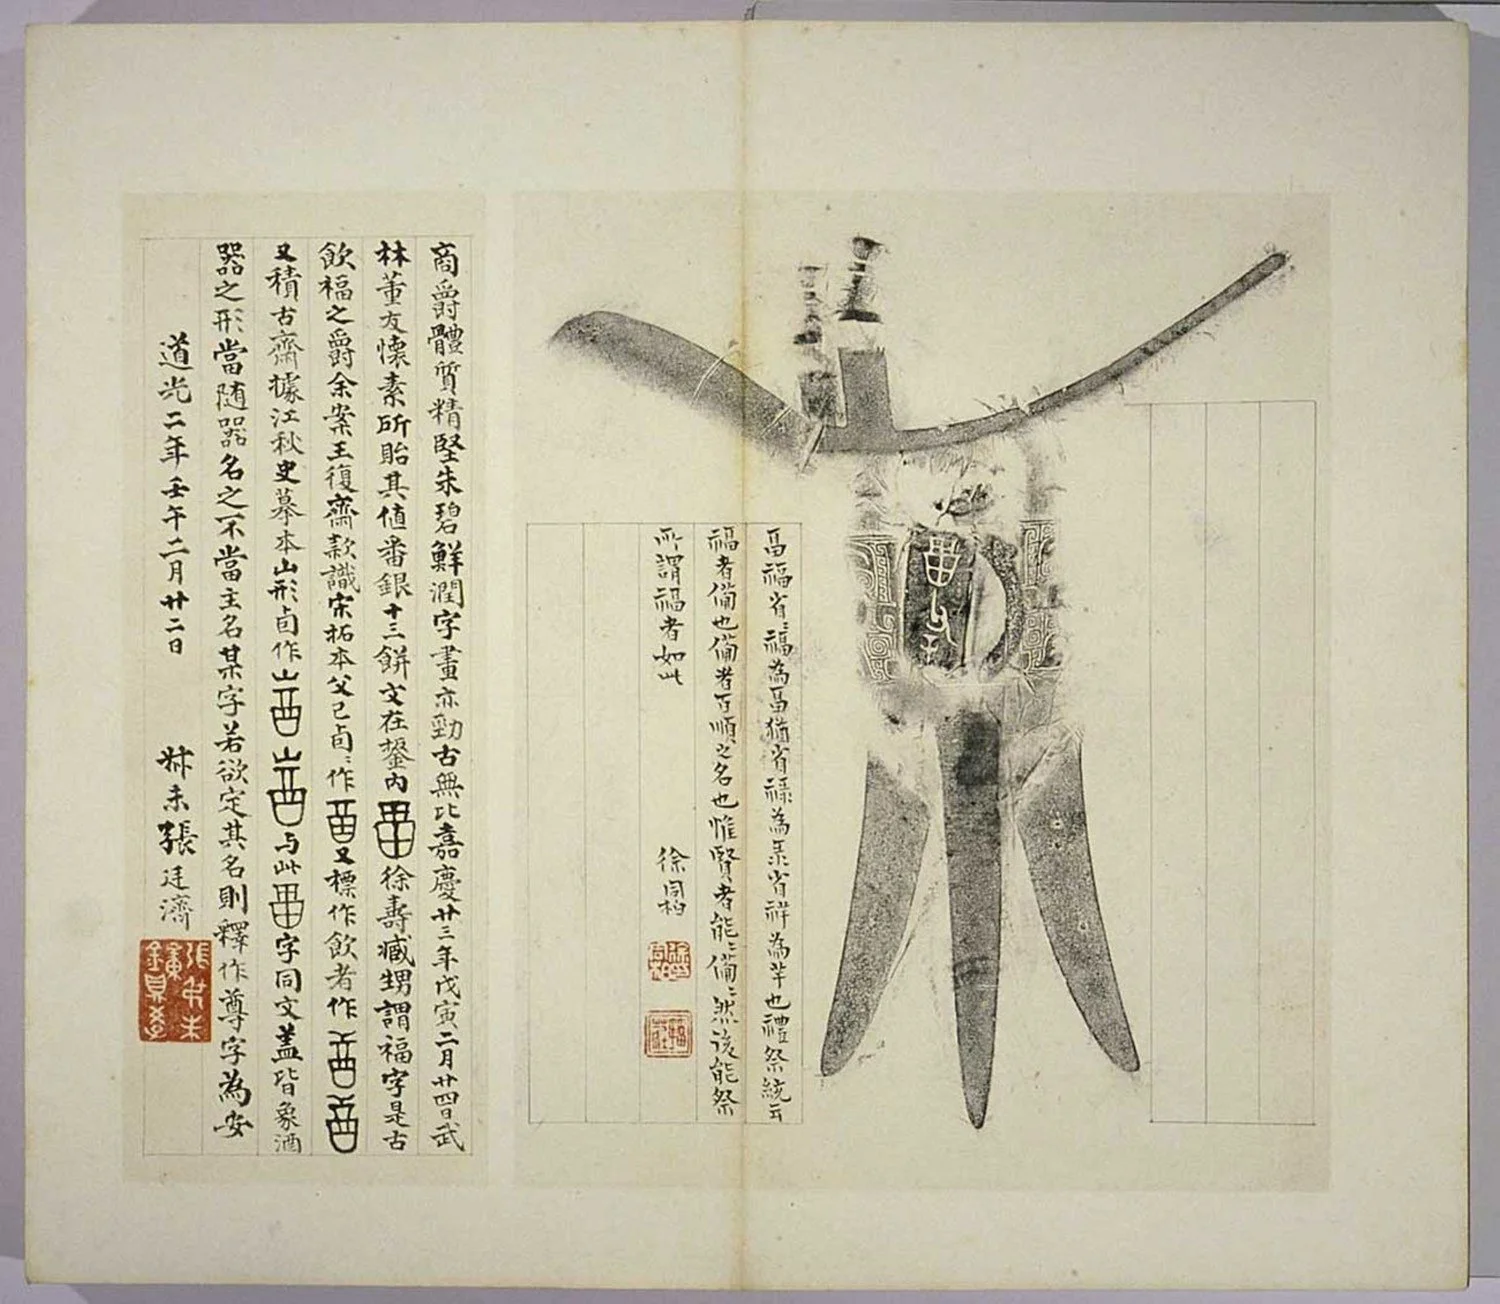 畐福省〻福為畐猶省祿為彔省祥為羊也禮祭統云
福者備也備者百順之名也惟賢者能〻備〻然後能祭
所謂福者如此
徐同柏
商爵體質精堅朱碧鮮潤字畫亦勁古無比嘉慶廿三年戊寅二月廿四日武
林董友懷素所貽其值番銀十三餅文在鋬內徐壽臧甥謂福字是古
飲福之爵余案王復齋款識宋拓本父己卣〻作又標作飲者作
又積古齋據江秋史摹本山形卣作山山与此字同文蓋皆象酒
器之形當随器名之不當主名某字若欲定其名則釋作尊字為安
道光二年壬午二月廿二日 叔未張廷濟